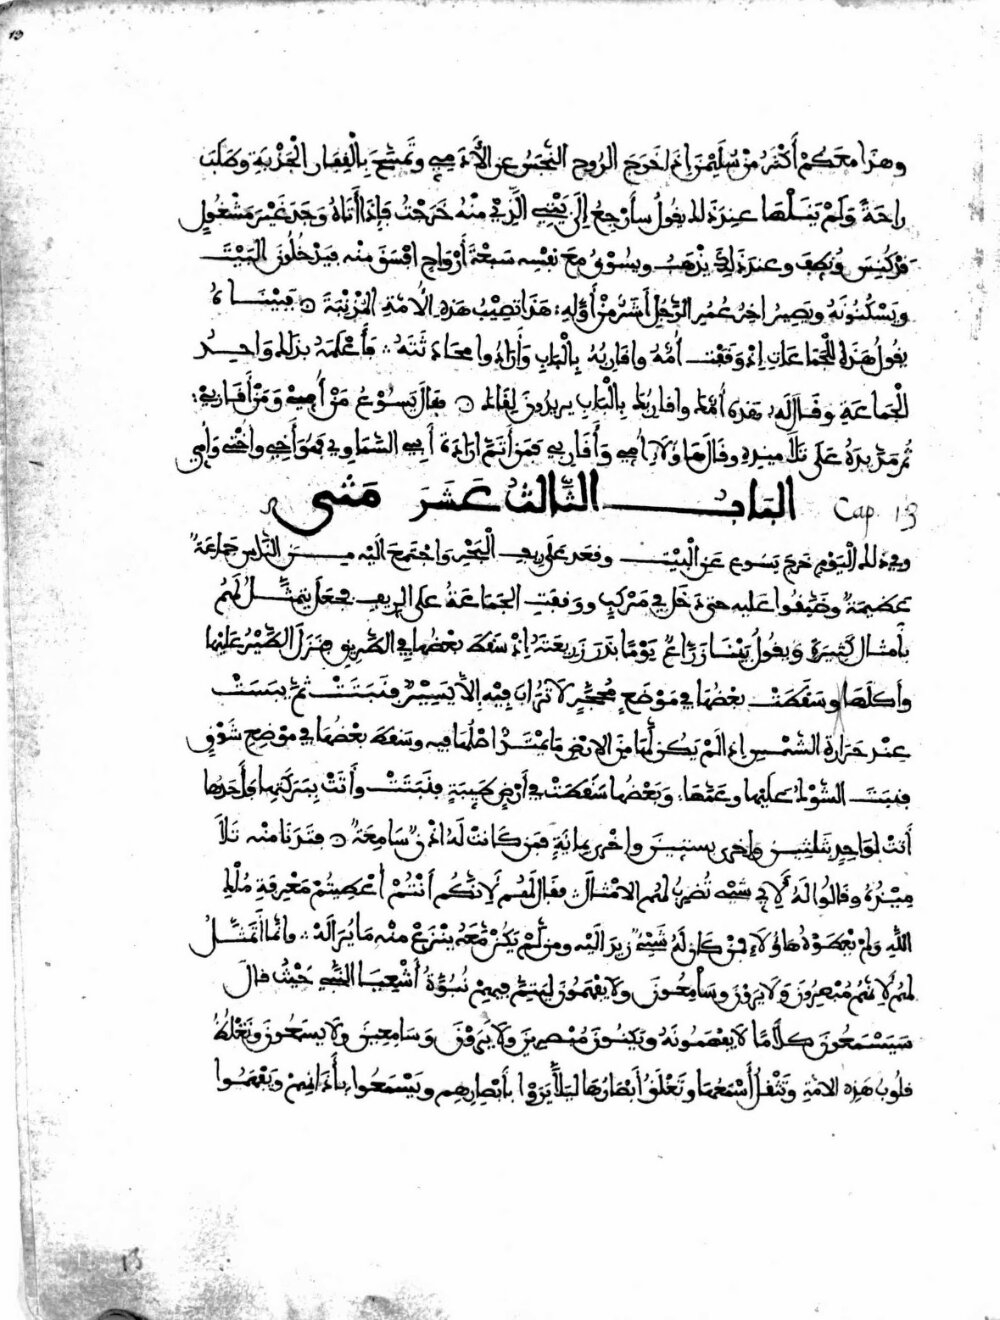 13
وهذا معكم أكثر من سليمن إذا خرج الروح النجس عن الأدمي وتمشى بالقفار الجزبة وطلب
راحة ولم ينلها عند ذلك يقول سأرجع إلى بيتي الذي منه خرجت فإذا أتاه وجده غير مشغول
قد كنس ونظف وعند ذلك يذهب ويسوق مع نفسه سبعة أرواح افسق منه فيدخلون البيت
ويسكنونه ويصير اخر عمر الرجل أشر من أوله هذا تصيب هذه الأمة الخزنية فبينا
يقول هذه للجماعات إذ وقفت أمه واقاربه بالباب وأرادوا محادثته فأعلمه بذلك واحد
الجماعة وقال له هذه أمك واقاربك بالباب يريدون لقاك قال يسوع من أمي ومن أقاربي
ثم مد يده على تلاميذه وقال هاولا أمي وأقاربي فمن أتم ارادة أبي السماوي فهو أخي واختي وأمي
الباب الثالث عشر متى
Cap 13
وفي ذلك اليوم خرج يسوع عن البيت وقعد على ريف البحر واجتمع اليه من الناس جماعة
عظيمة وضيقوا عليه حتى دخل في مركب ووقفت الجماعة على الريف فجعل يتمثل لهم
بأمثال كثيرة ويقول بينا زراع يوما بذر زريعته إذ سقط بعضها في الطريق فنزل الطير عليها
وأكلها وسقطت بعضها في موضع محجر لا تراب فيه إلا يسير فنبتت ثم يبست
عند حرارة الشمس إذ لم يكن لها من الارض ما يمتد اصلها فيه وسقط بعضها في موضع شوق
فنبت الشوك عليها وغمها وبعضها سقطت في أرض طيبة فنبتت وأتت ببركتها فأحدها
أتت لواحد بثلثين واخرى بستين واخرى بماية فمن كانت له اذن سامعة فتدنا منه تلا
ميذه وقالوا له لاي شي تضرب لهم الامثال فقال لهم لانكم أنتم أعطيتم معرفة ملك
الله ولم يعطوه هاولا فمن كان له شي زيد اليه ومن لم يكن معه ينزع منه ما يرا له وانما أتمثل
لهم لانهم مبصرون ولا يرون وسامعون ولا يفهمون ليتم فيهم نبوة أشعيا النبي حيث قال
سيسمعون كلاما لا يفهمونه ويكنون مبصرين ولا يرون وسامعين ولا يسمعون وتغلظ
قلوب هذه الامة وتثقل أسمعها وتغلق أبصارها ليلا يروا بأبصارهم ويسمعوا بأذانهم ويفهموا
13